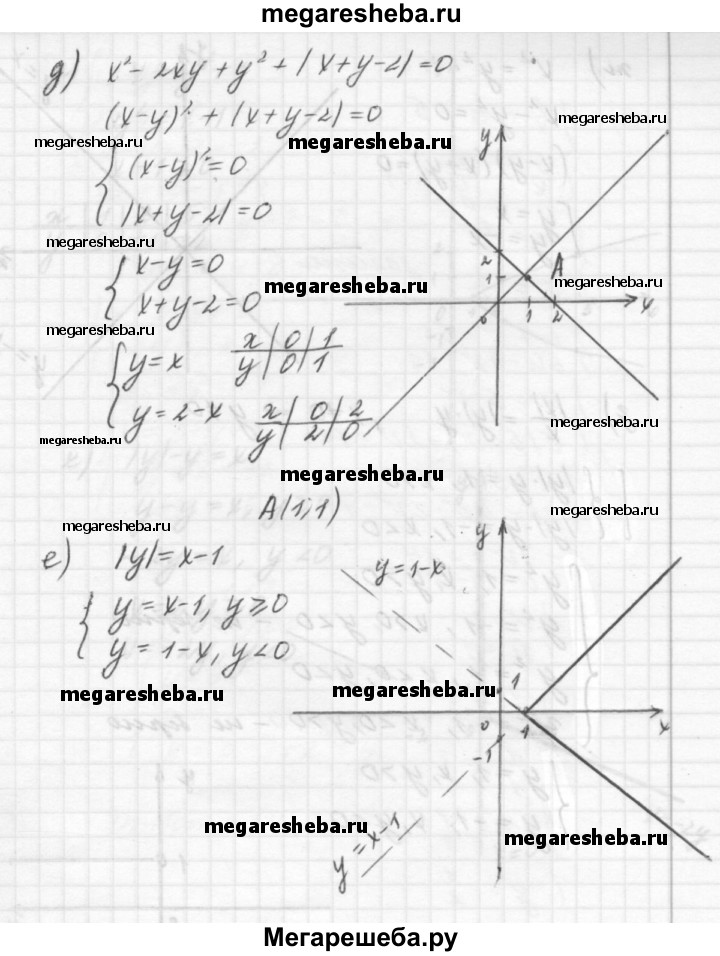 megaresheba.ru
д) x² - 2xy + y² + |x+y-2| = 0
(x-y)² + |x+y-2| = 0
megaresheba.ru
megaresheba.ru
megaresheba.ru
y
{ (x-y)² = 0
|x+y-2| = 0
megaresheba.ru
{ x-y=0
x+y-2=0
megaresheba.ru
2
1
A
megaresheba.ru
0
1
2
x
megaresheba.ru
{ y=x
x | 0 | 1
y | 0 | 1
y=2-x
x | 0 | 2
y | 2 | 0
megaresheba.ru
megaresheba.ru
megaresheba.ru
A(1;1)
megaresheba.ru
megaresheba.ru
е) |y|=x-1
y
y=1-x
{ y=x-1, y≥0
y=1-x, y<0
megaresheba.ru
megaresheba.ru
1
0
1
x
-1
megaresheba.ru
y=x-1
megaresheba.ru
Мегарешеба.ру